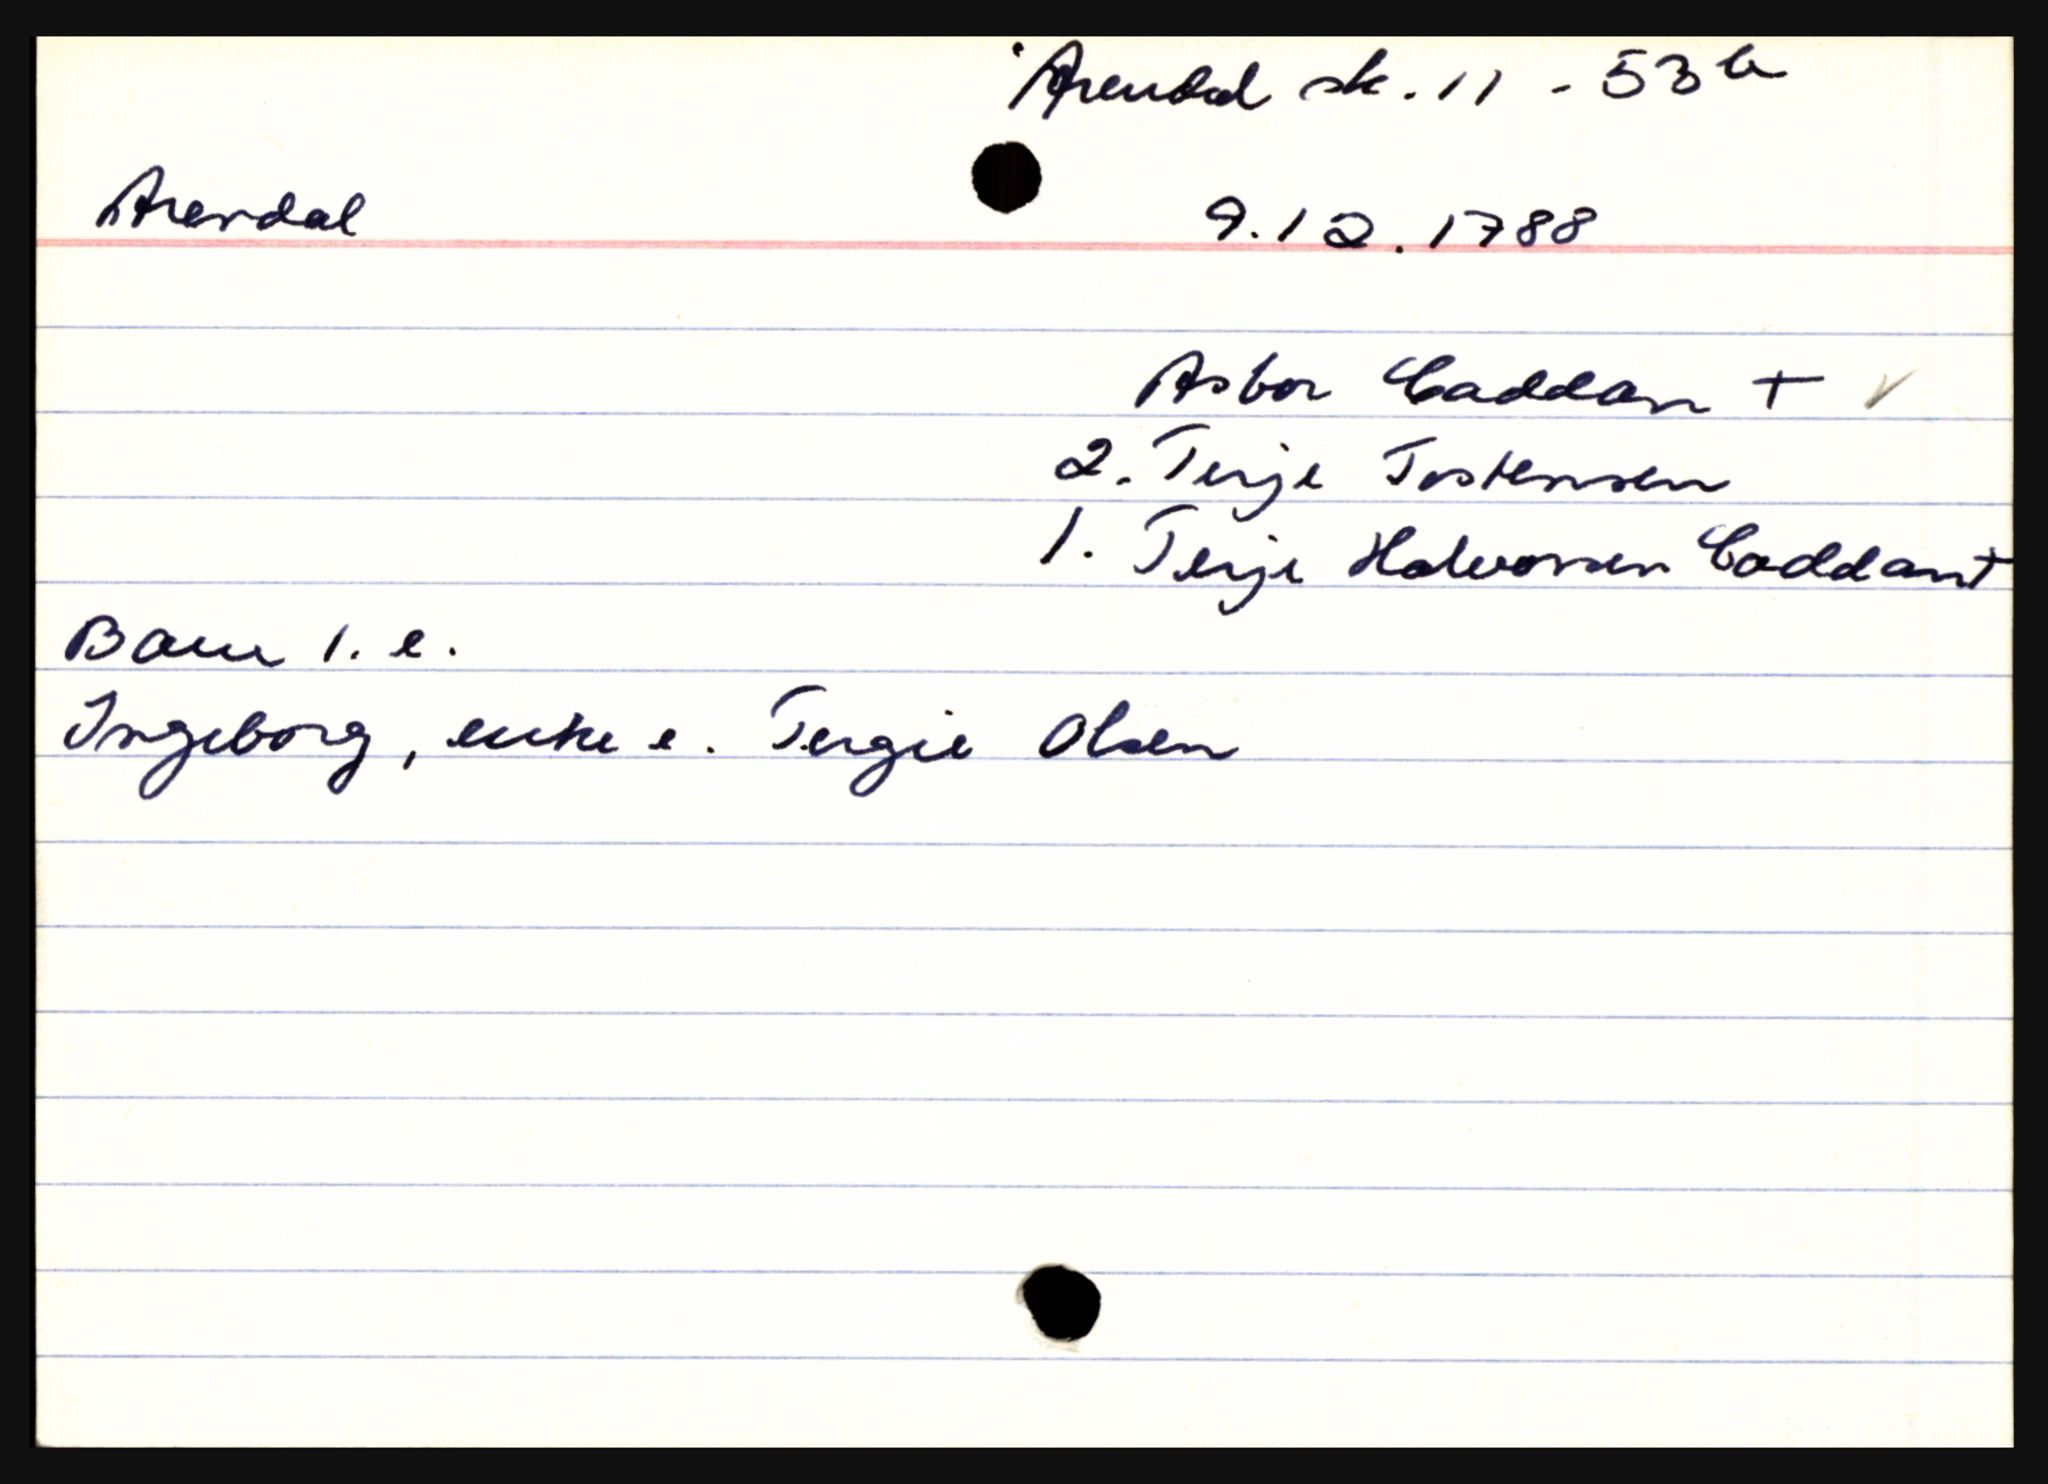 Arendal sk. 11 - 53 b
Arendal 9.12.1788
Asbor Caddan + ✓
2. Terje Tostensen
1. Terje Halvorsen Caddan +
Barn 1. e.
Ingeborg, enke e. Tergie Olsen